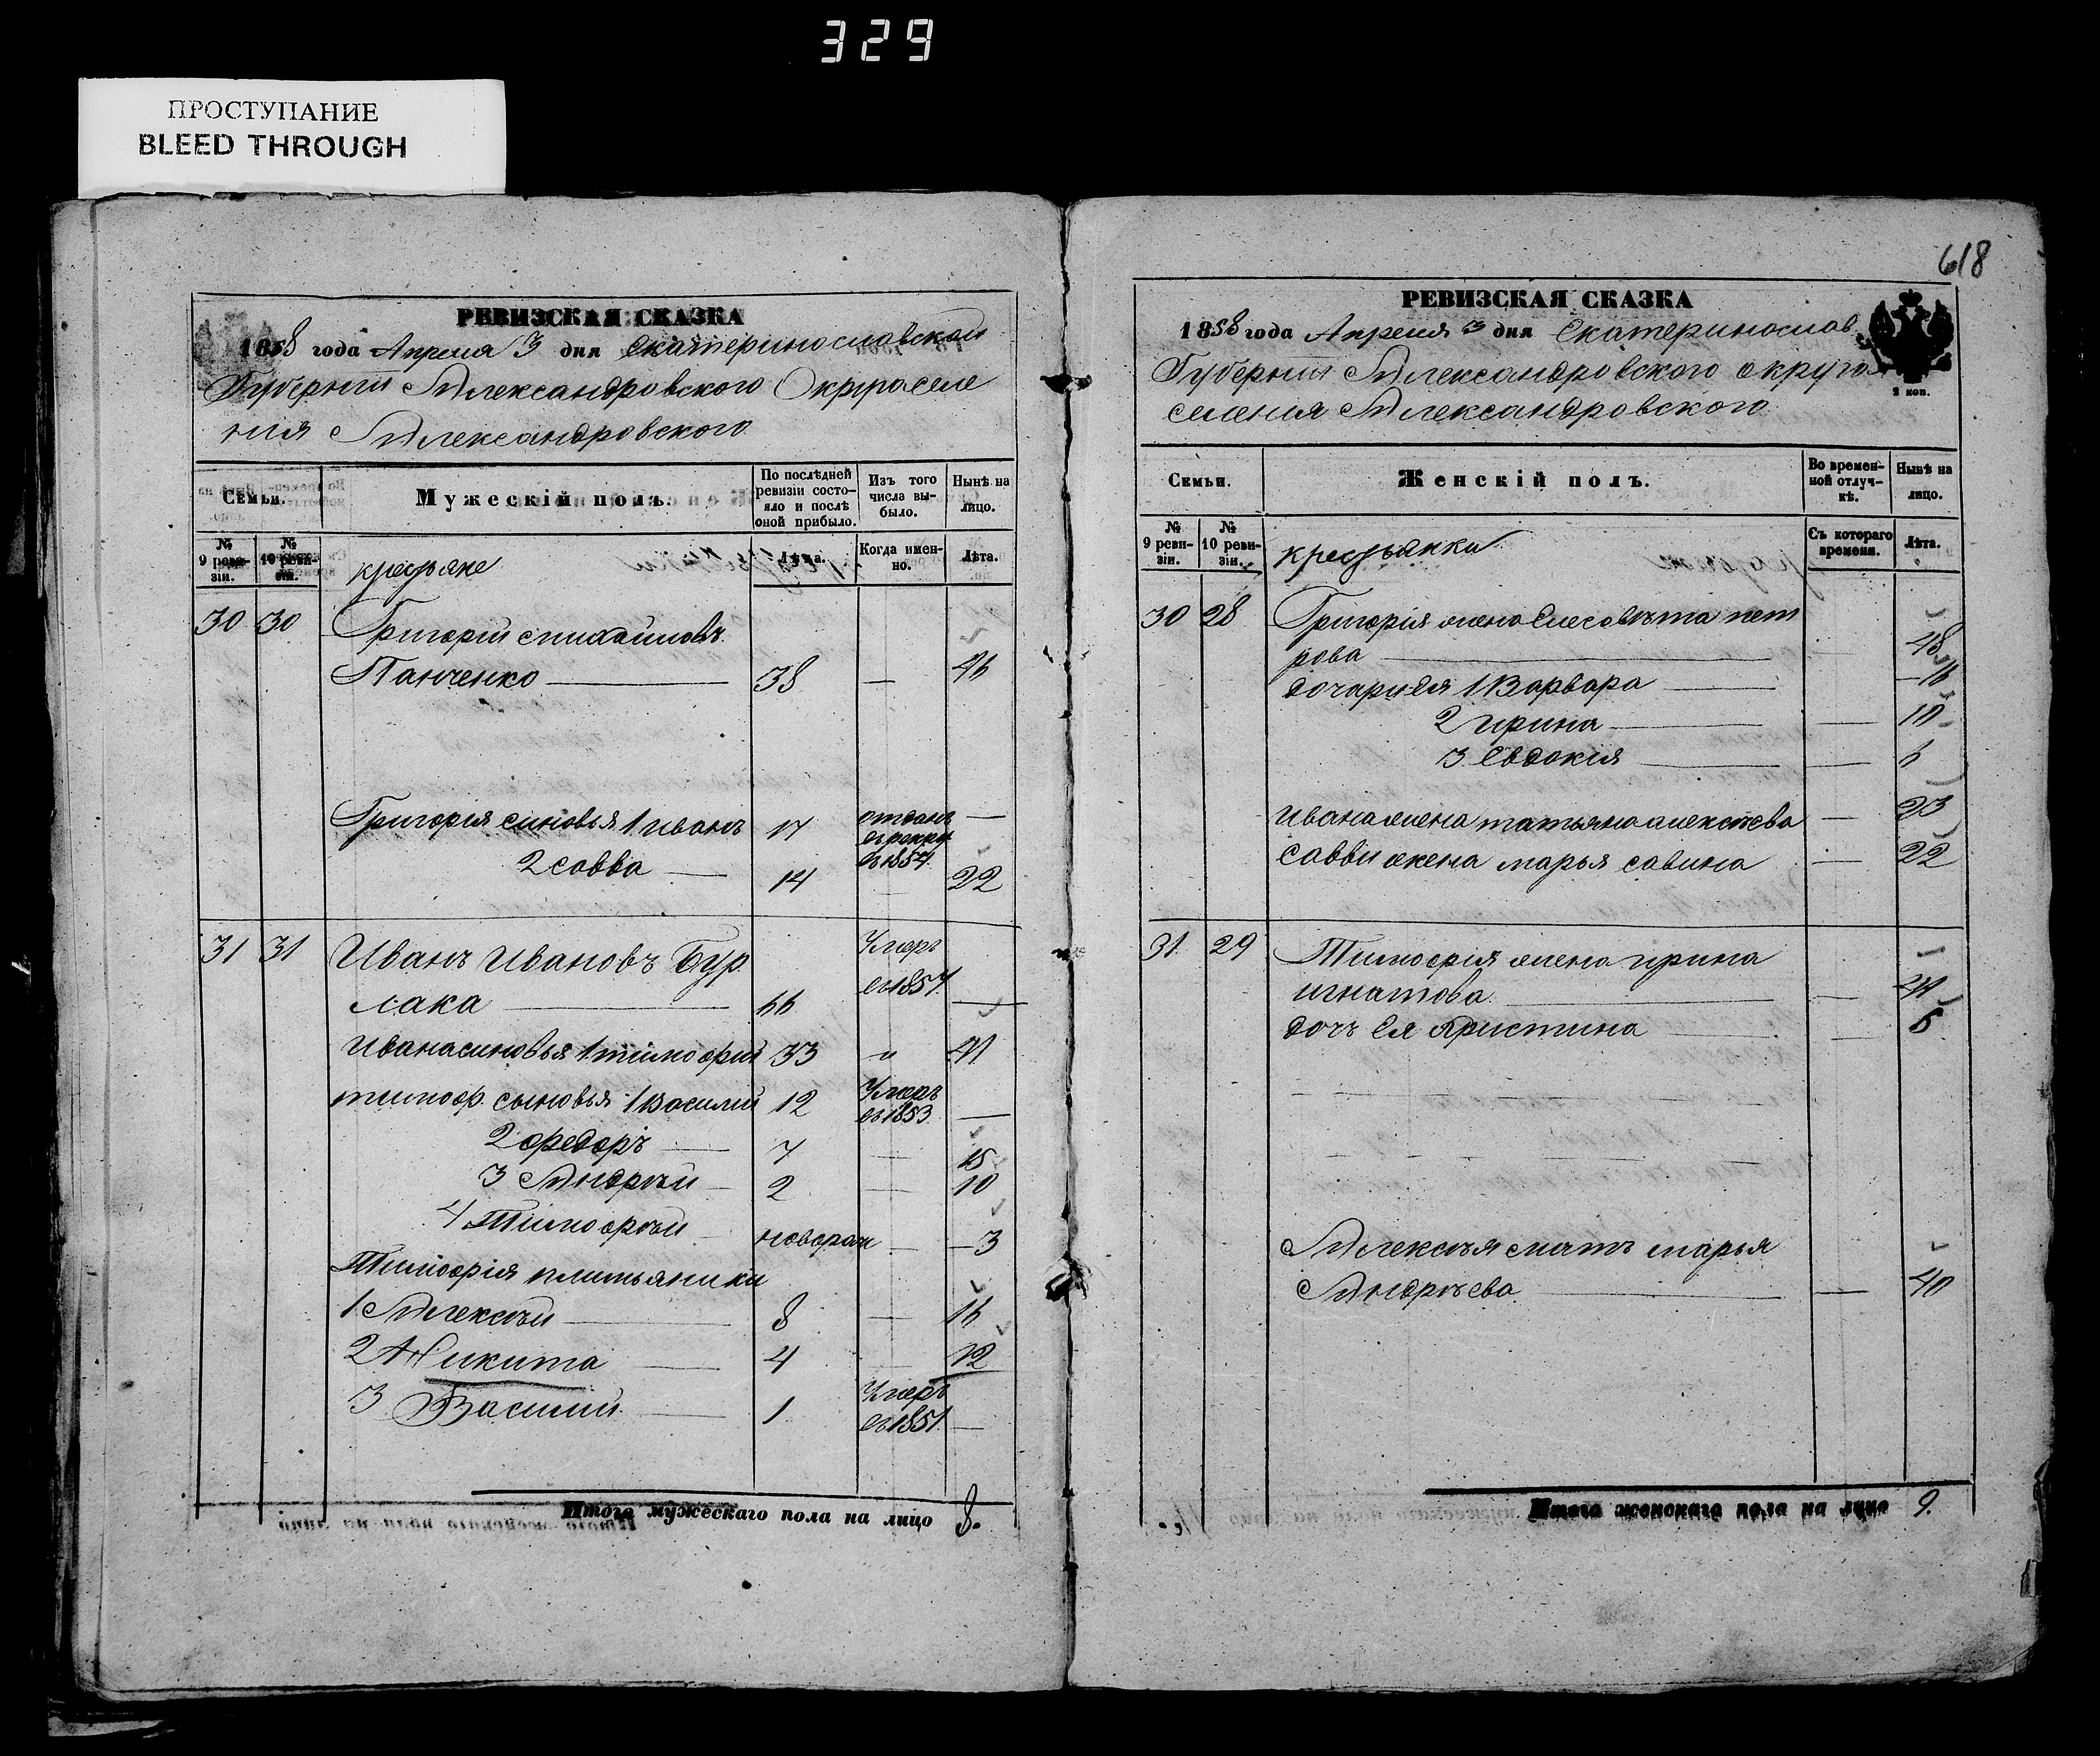 329
ПРОСТУПАНИЕ
BLEED THROUGH
РЕВИЗСКАЯ СКАЗКА
1858 года Апреля 3 дня Екатеринославской
Губернии Александровского Округа селе
ния Александровского
Семьи.
Мужескій полъ.
По послѣдней ревизіи состо-яло и послѣ оной прибыло.
Изъ того числа вы-было.
Нынѣ на лицо.
№ 9 реви-зіи.
№ 10 реви-зіи.
крестьяне
Лѣта.
Когда имен-но.
Лѣта.
30 30 Григорій
Панченко 38 — 46
Григорія синовья 1 Иванъ 17 отданъ въ рекру въ 1854 —
2 Савва 14 22
31 31 Иванъ Ивановъ Бур
лака 66 Умеръ въ 1857 —
Ивана синовья 1 тимофій 33 " 41
тимоф. сыновья 1 Василий 12 Умеръ въ 1853 —
2 Федоръ 7 — 15
3 Андрей 2 — 10
4 Тимофей новорож — 3
Тимофія племьяники
1 Алексѣй 8 — 16
2 Никита 4 12
3 Василий 1 Умеръ въ 1851 —
Итого мужескаго пола на лицо 8.
618
РЕВИЗСКАЯ СКАЗКА
1858 года Апреля 3 дня Екатеринослав
Губернии Александровского округа
селения Александровского
2 коп.
Семьи.
Женскій полъ.
Во времен-ной отлуч-кѣ.
Нынѣ на лицо.
№ 9 реви-зіи.
№ 10 реви-зіи.
крестьянки
Съ котораго времени.
Лѣта.
30 28 Григорія жена Елесавѣта пет
рова — 48
дочари Ея 1 Варвара 16
2 Ирина — 10
3 Евдокія — 6
Ивана жена татьяна алексѣева — 23
Савви жена марья савина — 22
31 29 Тимофія жена ирина
игнатова — 41
дочь Ея Христина — 6
Алексѣя мать марья
Андрѣева — 40
Итого женскаго пола на лицо 9.